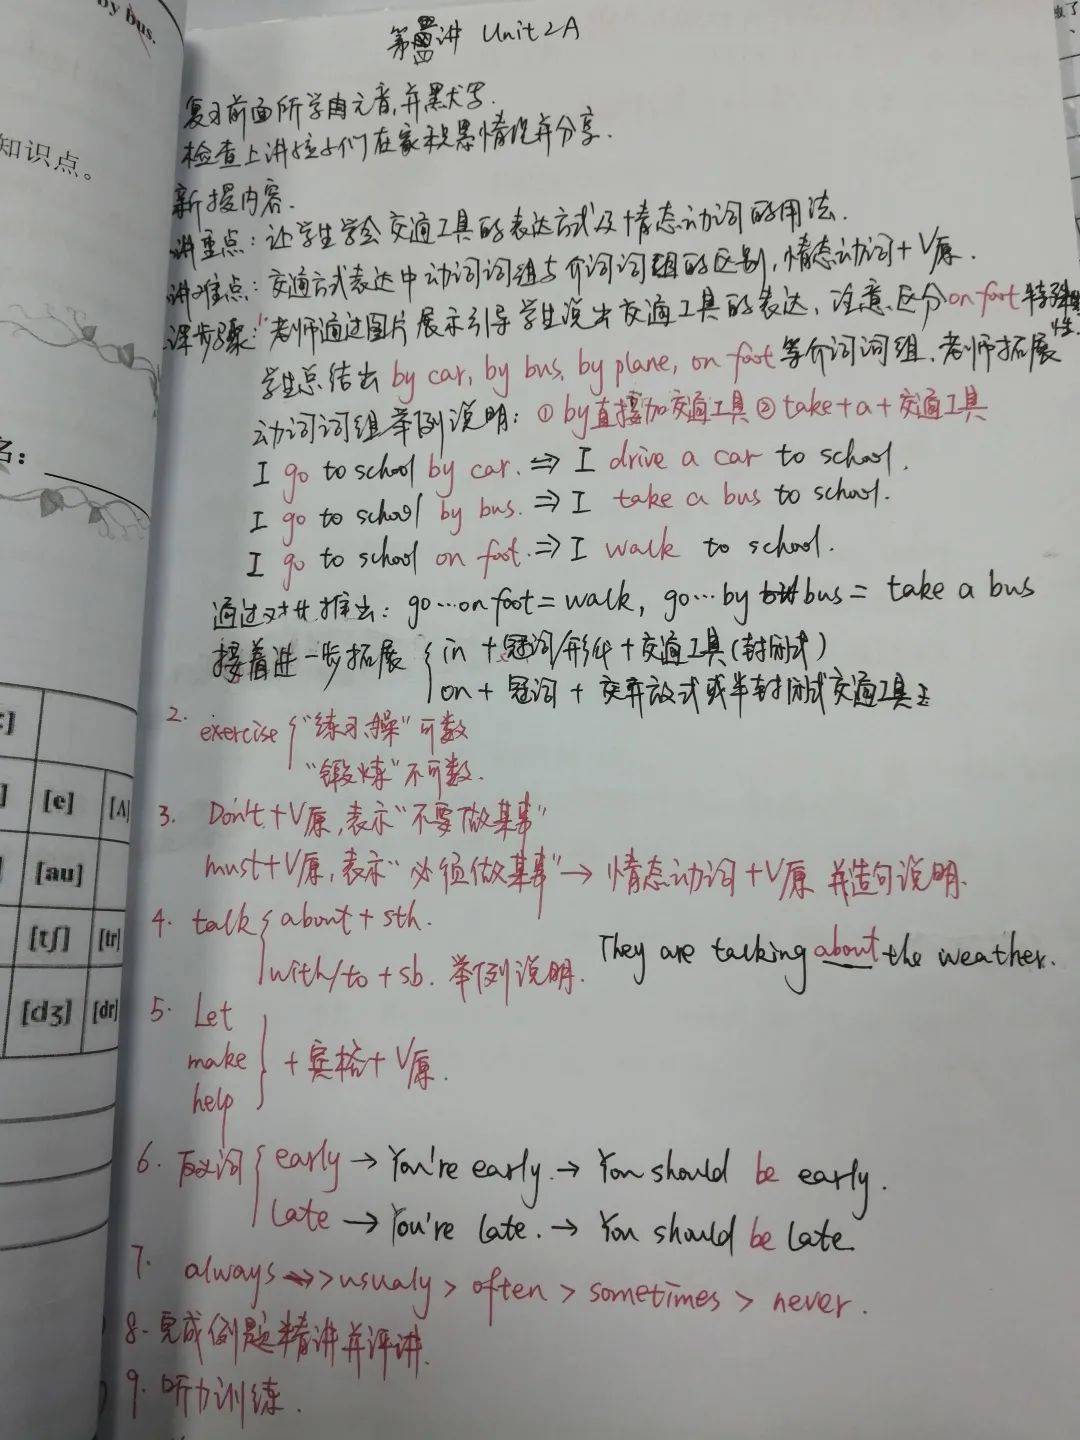 by bus.
知识点。
名:
[e] [ʌ]
[au]
[tʃ] [tr]
[dʒ] [dr]
第 讲 Unit 2A
复习前面所学的元音,并默写.
检查上讲孩子们在家积累情况并分享.
新授内容.
讲重点: 让学生学会交通工具的表达方式及情态动词的用法.
讲难点: 交通方式表达中动词词组与介词词组的区别, 情态动词+V原.
课步骤: 1 老师通过图片展示引导学生说出交通工具的表达, 注意区分on foot特殊性
学生总结出 by car, by bus, by plane, on foot 等介词词组, 老师拓展
动词词组举例说明: ① by直接加交通工具 ② take+a+交通工具
I go to school by car. ⇒ I drive a car to school.
I go to school by bus. ⇒ I take a bus to school.
I go to school on foot. ⇒ I walk to school.
通过对比推出: go…on foot = walk, go…by bus = take a bus
接着进一步拓展 { in + 冠词/形代 + 交通工具 (封闭式)
on + 冠词 + 开放式或半封闭式交通工具
2. exercise { "练习,操" 可数
"锻炼" 不可数.
3. Don't + V原, 表示"不要做某事"
must + V原, 表示"必须做某事" → 情态动词 + V原 并造句说明.
4. talk { about + sth.
with/to + sb. 举例说明. They are talking about the weather.
5. Let
make } + 宾格 + V原.
help
6. 反义词 { early → You're early. → You should be early.
late → You're late. → You should be late
7. always > usualy > often > sometimes > never.
8. 完成例题精讲并评讲.
9. 听力训练.